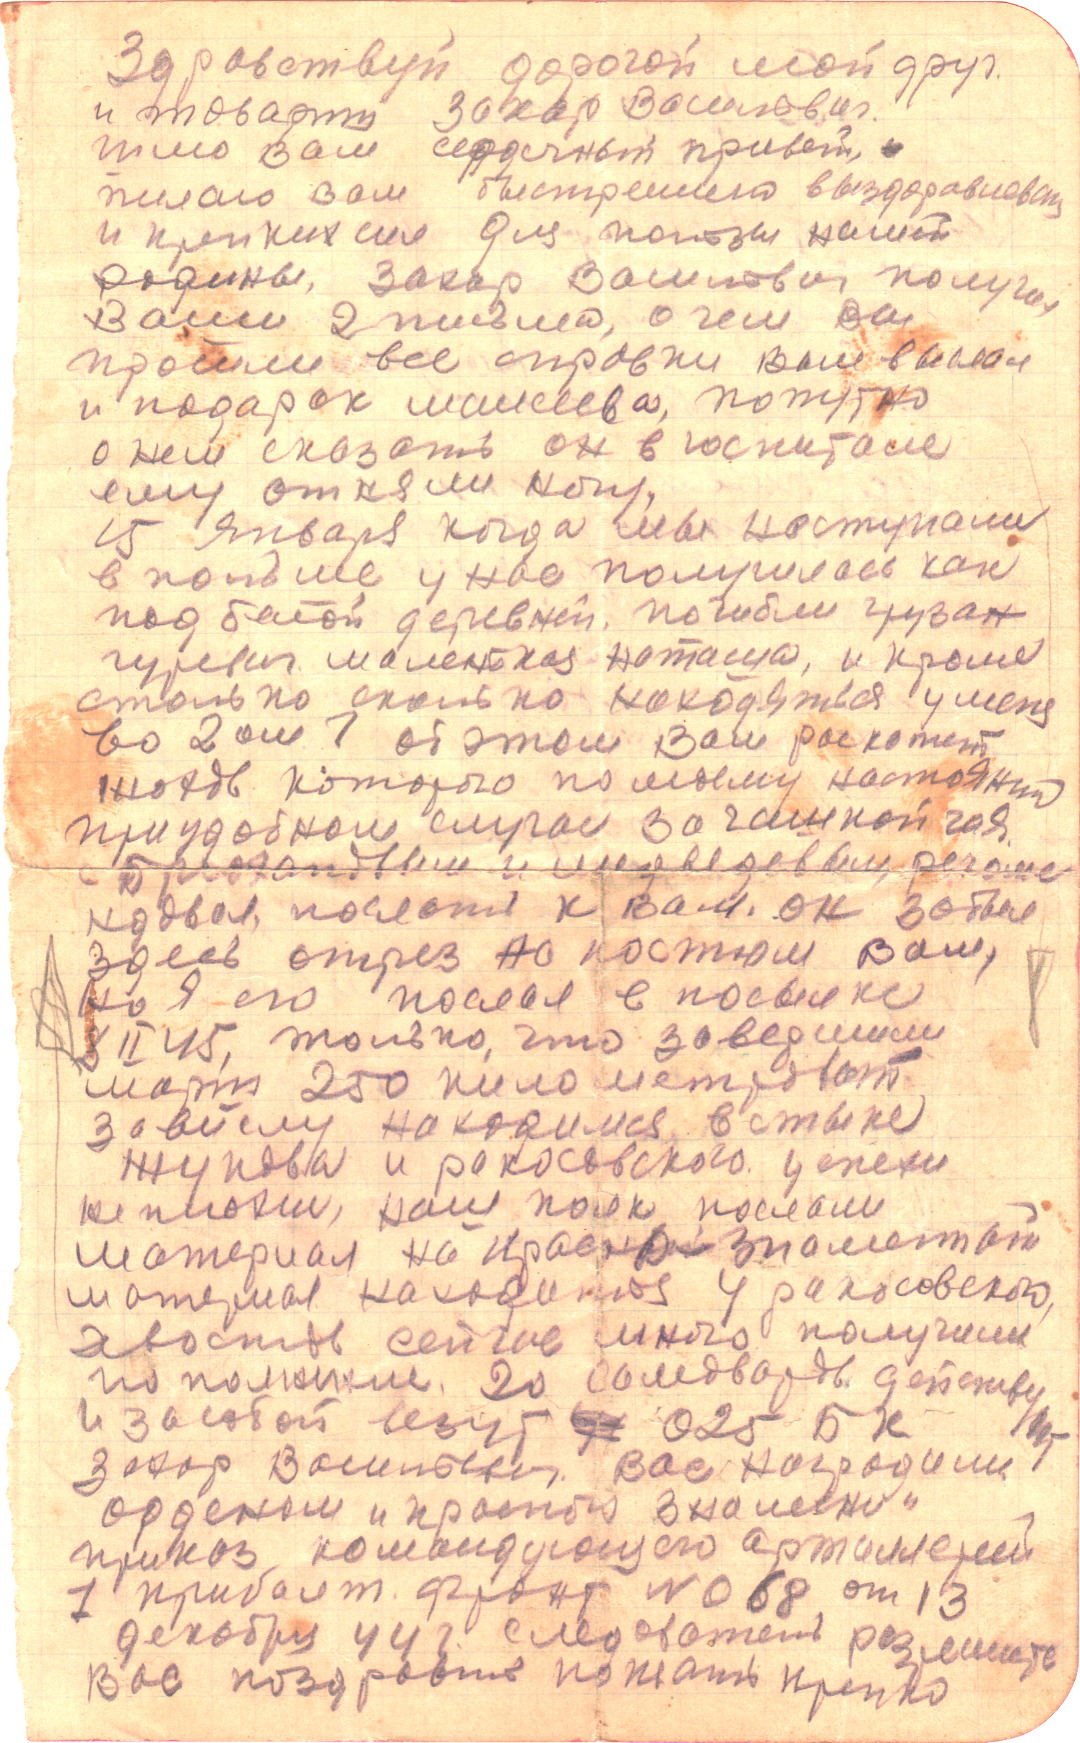 Здравствуй дорогой мой друг.
и товарищ Захар Васильевич.
шлю Вам сердечный привет, и
желаю Вам быстрейшего выздоровления
и крепких сил для пользы нашей
родины. Захар Васильевич получил
Ваши 2 письма, о чем Вы
просили все справки Вам выслал
и подарок, попутно
о нем сказать он в госпитале
ему отняли ногу.
15 Января когда мы наступали
в польше у нас получилось как
под белой деревней. погибли
гуревич маленькая наташа, и кроме
столько сколько находяться у меня
во 2 ом 7 об этом Вам раскажет
которого по моему настоянию
при удобном случаи за чашкой чая.
и медведевым,
послать к Вам. он забыл
здесь отрез на костюм Вам,
но я его послал в посылке
8 II 45, только, что завершили
марш 250 километровый
за вислу находимся в стыке
Жукова и ракосовского. успехи
неплохи, наш полк послали
материал на Краснознаменный
материал находится у ракосовского,
хвостов сейчас много получили
пополнение. 20 самоваров действуют
и за собой везут 025 БК
Захар Васильевич. Вас наградили
орденом "красного Знамени"
приказ командующего Артиллерией
1 прибалт. фронт N 068 от 13
декабря 44 г. следовательно разрешите
Вас поздравить пожать крепко